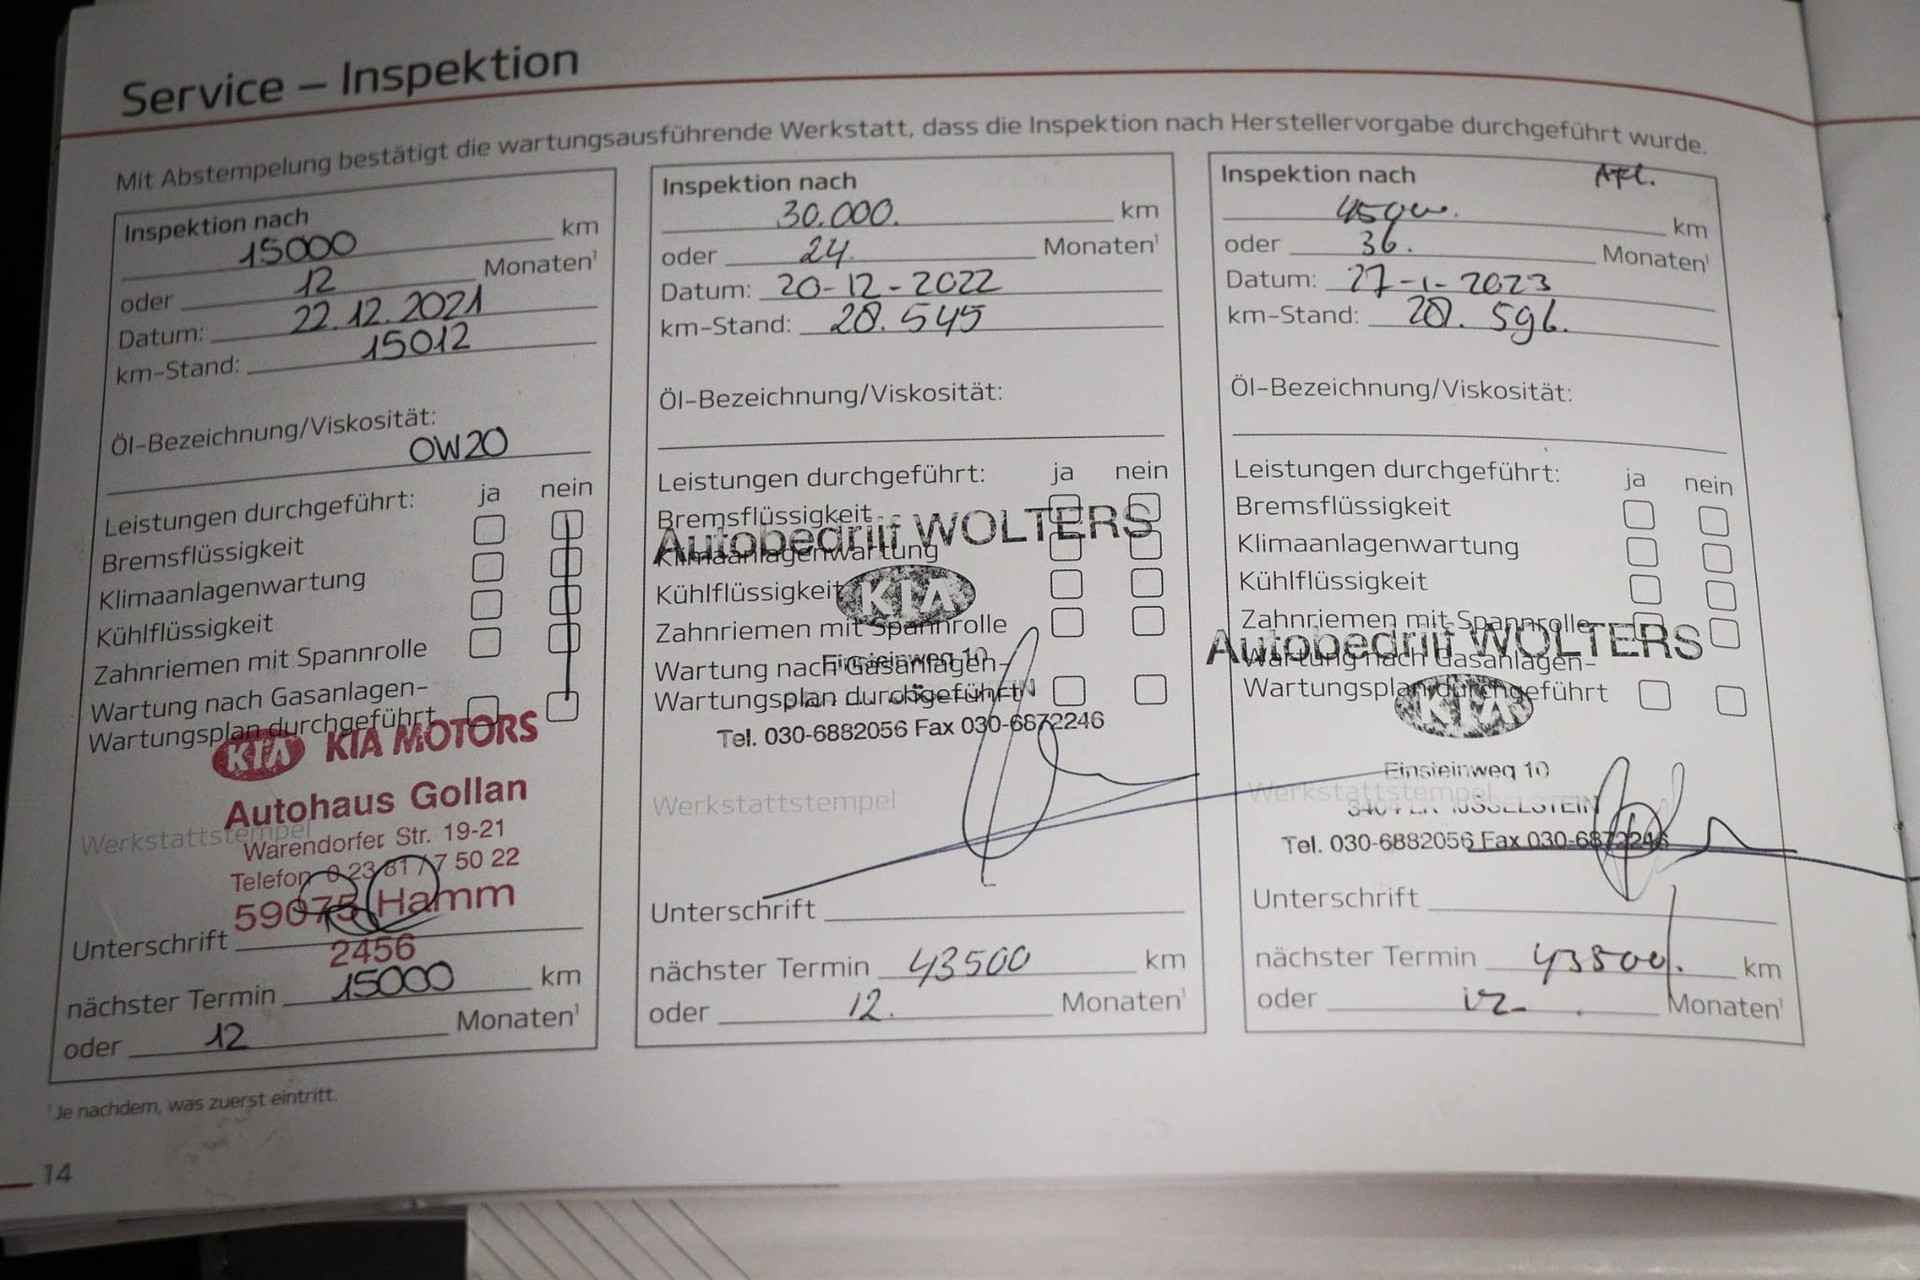 Service – Inspektion
Mit Abstempelung bestätigt die wartungsausführende Werkstatt, dass die Inspektion nach Herstellervorgabe durchgeführt wurde.
Inspektion nach
15000 km
oder 12 Monaten¹
Datum: 22.12.2021
km-Stand: 15012
Öl-Bezeichnung/Viskosität:
0W20
Leistungen durchgeführt: ja nein
Bremsflüssigkeit
Klimaanlagenwartung
Kühlflüssigkeit
Zahnriemen mit Spannrolle
Wartung nach Gasanlagen-
Wartungsplan durchgeführt
KIA KIA MOTORS
Autohaus Gollan
Werkstattstempel
Warendorfer Str. 19-21
Telefon 0 23 81 / 7 50 22
59075 Hamm
Unterschrift
2456
nächster Termin 15000 km
oder 12 Monaten¹
Inspektion nach
30.000. km
oder 24. Monaten¹
Datum: 20-12-2022
km-Stand: 28.545
Öl-Bezeichnung/Viskosität:
Leistungen durchgeführt: ja nein
Bremsflüssigkeit
Autobedrijf WOLTERS
Klimaanlagenwartung
Kühlflüssigkeit
KIA
Zahnriemen mit Spannrolle
Einsteinweg 10
Wartung nach Gasanlagen-
Wartungsplan durchgeführt
Tel. 030-6882056 Fax 030-6872246
Werkstattstempel
Unterschrift
nächster Termin 43500 km
oder 12. Monaten¹
Inspektion nach
45000. km
oder 36. Monaten¹
Datum: 27-1-2023
km-Stand: 28.596.
Öl-Bezeichnung/Viskosität:
Leistungen durchgeführt: ja nein
Bremsflüssigkeit
Klimaanlagenwartung
Kühlflüssigkeit
Zahnriemen mit Spannrolle
Autobedrijf WOLTERS
Wartung nach Gasanlagen-
Wartungsplan durchgeführt
KIA
Einsteinweg 10
Werkstattstempel
IJSSELSTEIN
Tel. 030-6882056 Fax 030-6872246
Unterschrift
nächster Termin 43500. km
oder 12 Monaten¹
¹Je nachdem, was zuerst eintritt.
14